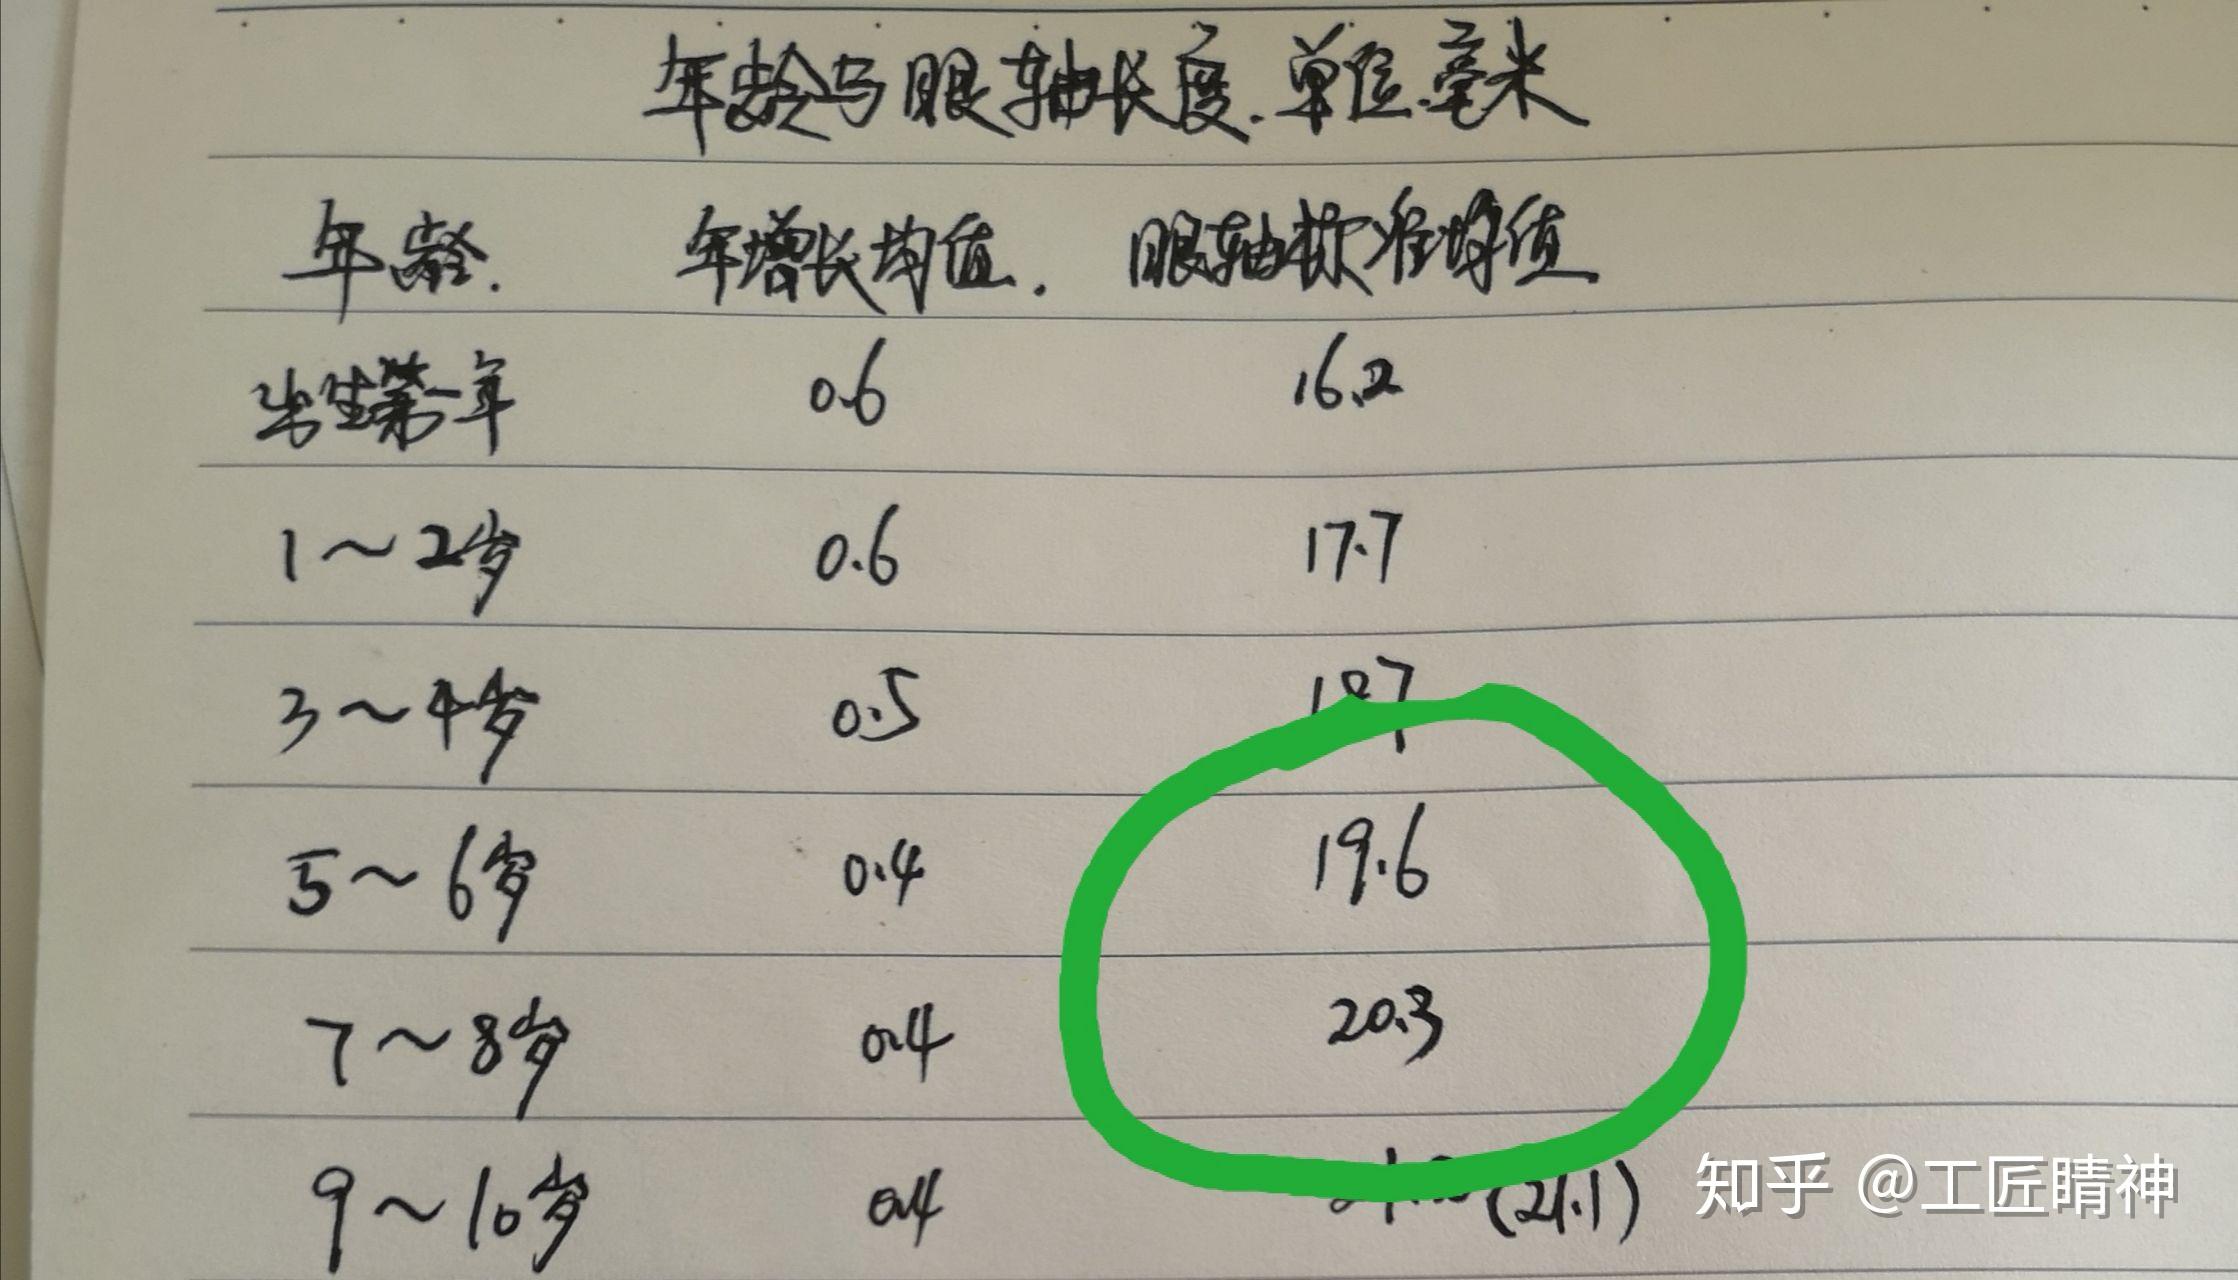 年龄与眼轴长度.单位.毫米
年龄. 年增长均值. 眼轴标准均值
出生第一年 0.6 16.2
1～2岁 0.6 17.7
3～4岁 0.5
5～6岁 0.4 19.6
7～8岁 0.4 20.3
9～10岁 0.4 (21.1)
知乎 @工匠睛神